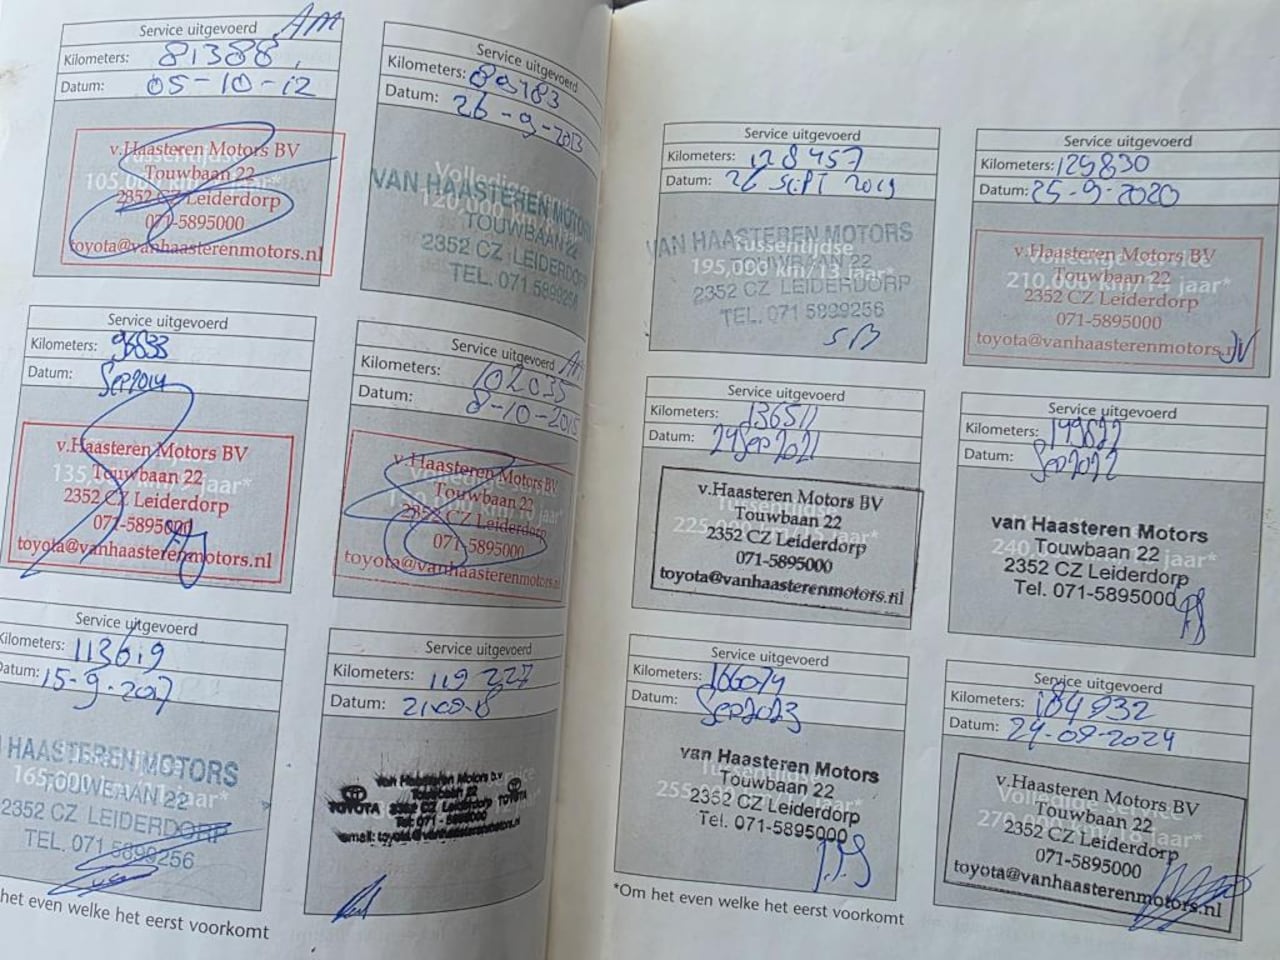 Service uitgevoerd AM
Kilometers: 81388
Datum: 05-10-12
Tussentijdse
105,000 km/ jaar*
v.Haasteren Motors BV
Touwbaan 22
2352 CZ Leiderdorp
071-5895000
toyota@vanhaasterenmotors.nl
Service uitgevoerd
Kilometers: 89183
Datum: 26-9-2013
Volledige service
120,000 km/
VAN HAASTEREN MOTORS
TOUWBAAN 22
2352 CZ LEIDERDORP
TEL. 071 5899256
Service uitgevoerd
Kilometers: 96833
Datum: Sep 2014
135, jaar*
v.Haasteren Motors BV
Touwbaan 22
2352 CZ Leiderdorp
071-5895000
toyota@vanhaasterenmotors.nl
Service uitgevoerd
Kilometers: 102035
Datum: 8-10-2015
Volledige service
jaar*
v.Haasteren Motors BV
Touwbaan 22
2352 CZ Leiderdorp
071-5895000
toyota@vanhaasterenmotors.nl
Service uitgevoerd
Kilometers: 113619
Datum: 15-9-2017
165,000 jaar*
HAASTEREN MOTORS
TOUWBAAN 22
2352 CZ LEIDERDORP
TEL. 071 5899256
Service uitgevoerd
Kilometers: 119227
Datum:
van Haasteren Motors b.v
Touwbaan 22
TOYOTA 2352 CZ Leiderdorp TOYOTA
Tel: 071 - 5895000
email: toyota@vanhaasterenmotors.nl
het even welke het eerst voorkomt
Service uitgevoerd
Kilometers: 128457
Datum: 26 Sept 2019
Tussentijdse
195,000 km/13 jaar*
VAN HAASTEREN MOTORS
TOUWBAAN 22
2352 CZ LEIDERDORP
TEL. 071 5899256
SB
Service uitgevoerd
Kilometers: 129830
Datum: 25-9-2020
Volledige service
210,000 km/14 jaar*
v.Haasteren Motors BV
Touwbaan 22
2352 CZ Leiderdorp
071-5895000
toyota@vanhaasterenmotors.nl
JV
Service uitgevoerd
Kilometers: 136511
Datum: 24 Sep 2021
Tussentijdse
225,000 jaar*
v.Haasteren Motors BV
Touwbaan 22
2352 CZ Leiderdorp
071-5895000
toyota@vanhaasterenmotors.nl
Service uitgevoerd
Kilometers: 149622
Datum: Sep 2022
240, jaar*
van Haasteren Motors
Touwbaan 22
2352 CZ Leiderdorp
Tel. 071-5895000
Service uitgevoerd
Kilometers: 166074
Datum: Sep 2023
Tussentijdse
255,000 jaar*
van Haasteren Motors
Touwbaan 22
2352 CZ Leiderdorp
Tel. 071-5895000
Service uitgevoerd
Kilometers: 184932
Datum: 24-09-2024
Volledige service
270,000 km/18 jaar*
v.Haasteren Motors BV
Touwbaan 22
2352 CZ Leiderdorp
071-5895000
toyota@vanhaasterenmotors.nl
*Om het even welke het eerst voorkomt